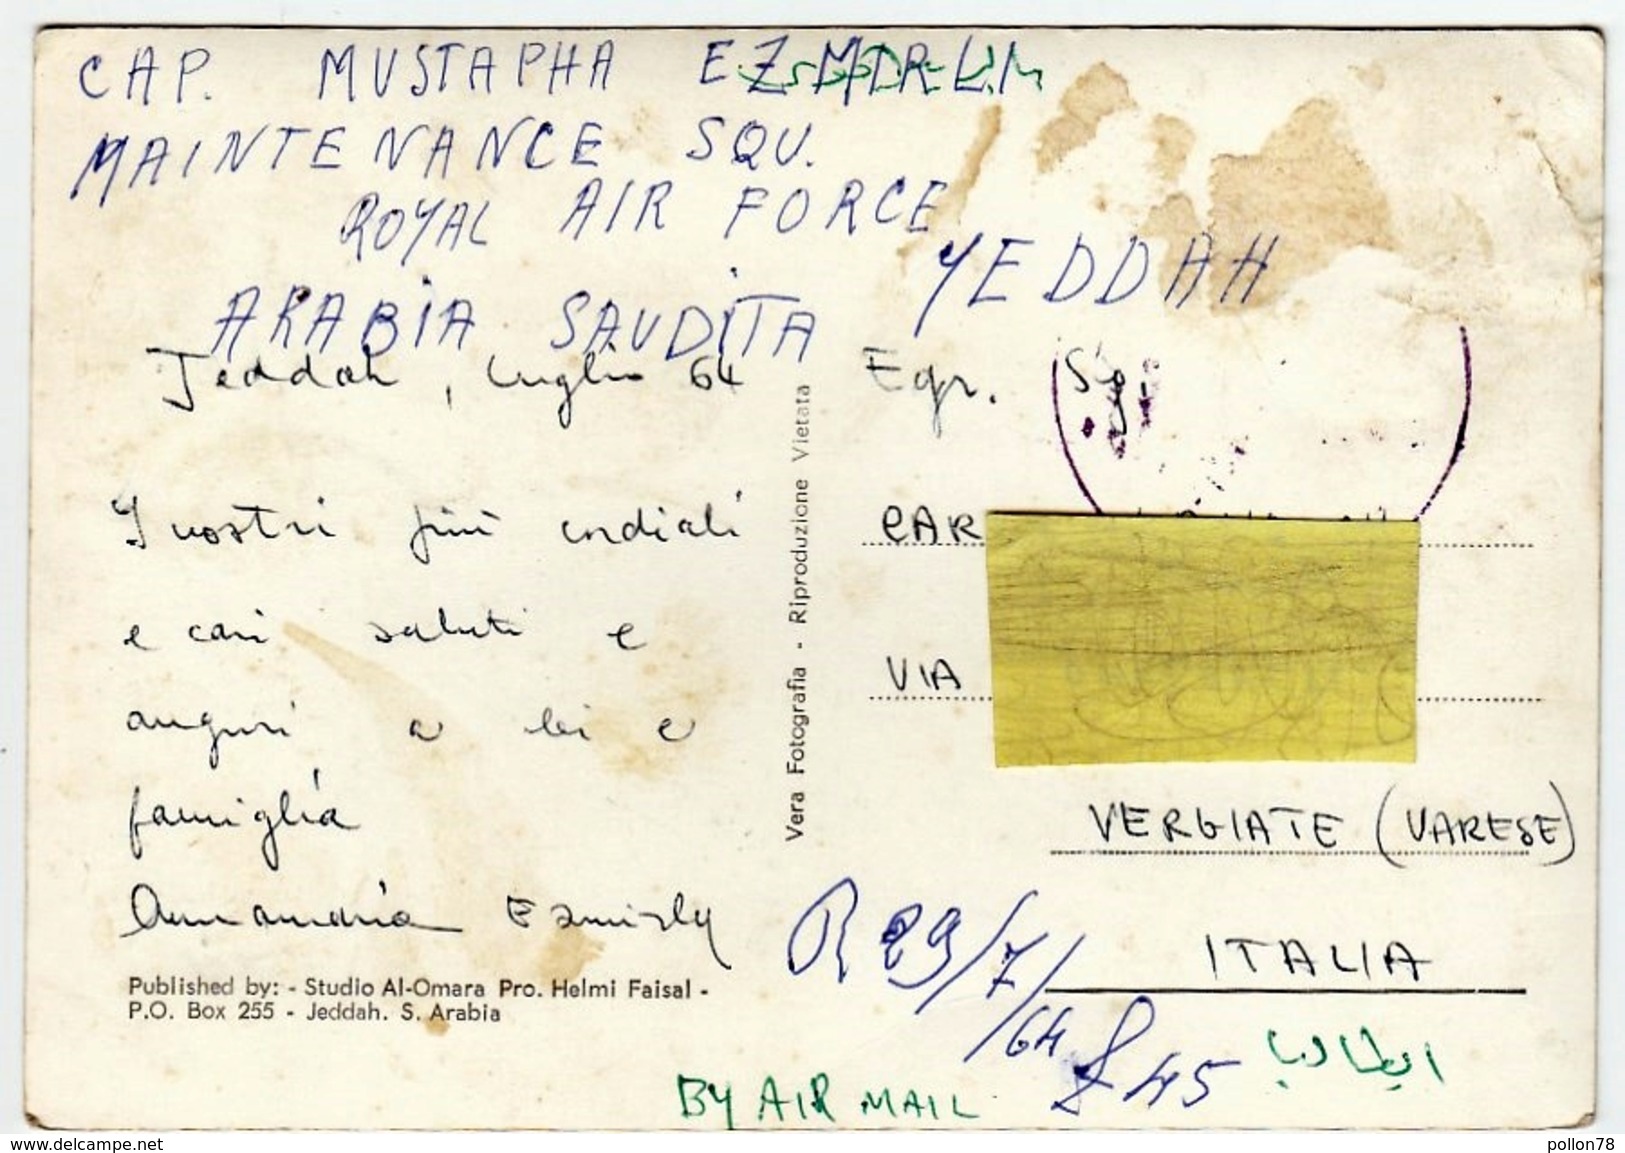 CAP. MUSTAPHA EZMIRLI
MAINTENANCE SQU.
ROYAL AIR FORCE
YEDDAH
ARABIA SAUDITA
Jeddah, luglio 64
I nostri più cordiali
e cari saluti e
auguri a lei e
famiglia
Ezmirly
Published by: - Studio Al-Omara Pro. Helmi Faisal -
P.O. Box 255 - Jeddah. S. Arabia
Vera Fotografia - Riproduzione Vietata
Egr. Sig.
CAR
VIA
VERGIATE (VARESE)
ITALIA
R 29/7/64
45
ايطاليا
BY AIR MAIL
www.delcampe.net
pollon78